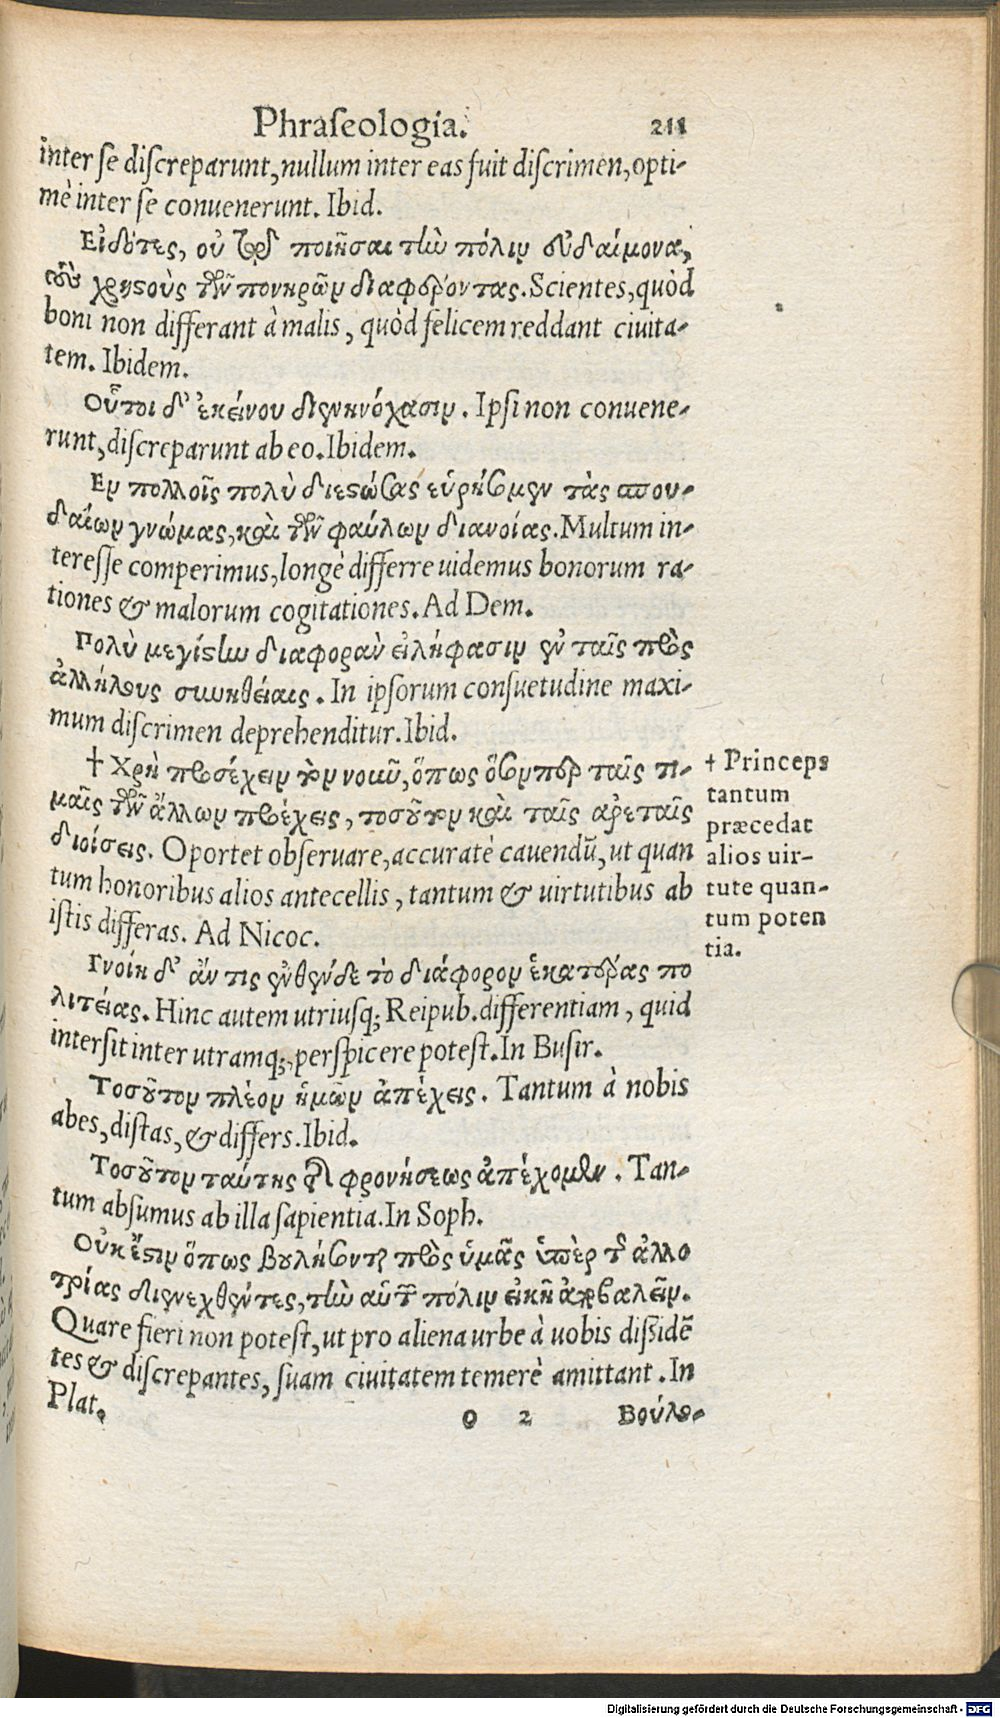 Phraſeologia. 211
inter ſe diſcreparunt, nullum inter eas fuit diſcrimen, opti-
mè inter ſe conuenerunt. Ibid.
Εἰδότες, οὐ τοὺς ποιῆσαι τὴν πόλιν εὐδαίμονα,
χρηϛοὺς τῶν πονηρῶν διαφέροντας. Scientes, quòd
boni non differant à malis, quòd felicem reddant ciuita-
tem. Ibidem.
Οὗτοι δ' ἐκείνου διενηνόχασιν. Ipſi non conuene-
runt, diſcreparunt ab eo. Ibidem.
Εν πολλοῖς πολὺ διεϛώσας εὑρήσομεν τὰς σπου-
δαίων γνώμας, καὶ τῶν φαύλων διανοίας. Multum in-
tereſſe comperimus, longè differre uidemus bonorum ra-
tiones & malorum cogitationes. Ad Dem.
Πολὺ μεγίϛην διαφορὰν εἰλήφασιν ἐν ταῖς πρὸς
ἀλλήλους συνηθείαις. In ipſorum conſuetudine maxi-
mum diſcrimen deprehenditur. Ibid.
† Χρὴ προσέχειν τὸν νοῦν, ὅπως ὅσονπερ ταῖς τι-
μαῖς τῶν ἄλλων προέχεις, τοσοῦτον καὶ ταῖς ἀρεταῖς
διοίσεις. Oportet obſeruare, accuratè cauendũ, ut quan
tum honoribus alios antecellis, tantum & uirtutibus ab
iſtis differas. Ad Nicoc.
† Princeps
tantum
præcedat
alios uir-
tute quan-
tum poten
tia.
Γνοίη δ' ἄν τις ἐνθένδε τὸ διάφορον ἑκατέρας πο
λιτείας. Hinc autem utriuſq; Reipub. differentiam, quid
interſit inter utramq;, perſpicere poteſt. In Buſir.
Τοσοῦτον πλέον ἡμῶν ἀπέχεις. Tantum à nobis
abes, diſtas, & differs. Ibid.
Τοσοῦτον ταύτης τῆς φρονήσεως ἀπέχομεν. Tan-
tum abſumus ab illa ſapientia. In Soph.
Οὐκ ἔϛιν ὅπως βουλήσονται πρὸς ὑμᾶς ὑπὲρ τῆς ἀλλο
τρίας διενεχθέντες, τὴν αὑτῶν πόλιν εἰκῆ ἀποβαλεῖν.
Quare fieri non poteſt, ut pro aliena urbe à uobis diſſidẽ
tes & diſcrepantes, ſuam ciuitatem temerè amittant. In
Plat.
O 2 Βούλο-
Digitalisierung gefördert durch die Deutsche Forschungsgemeinschaft - DFG